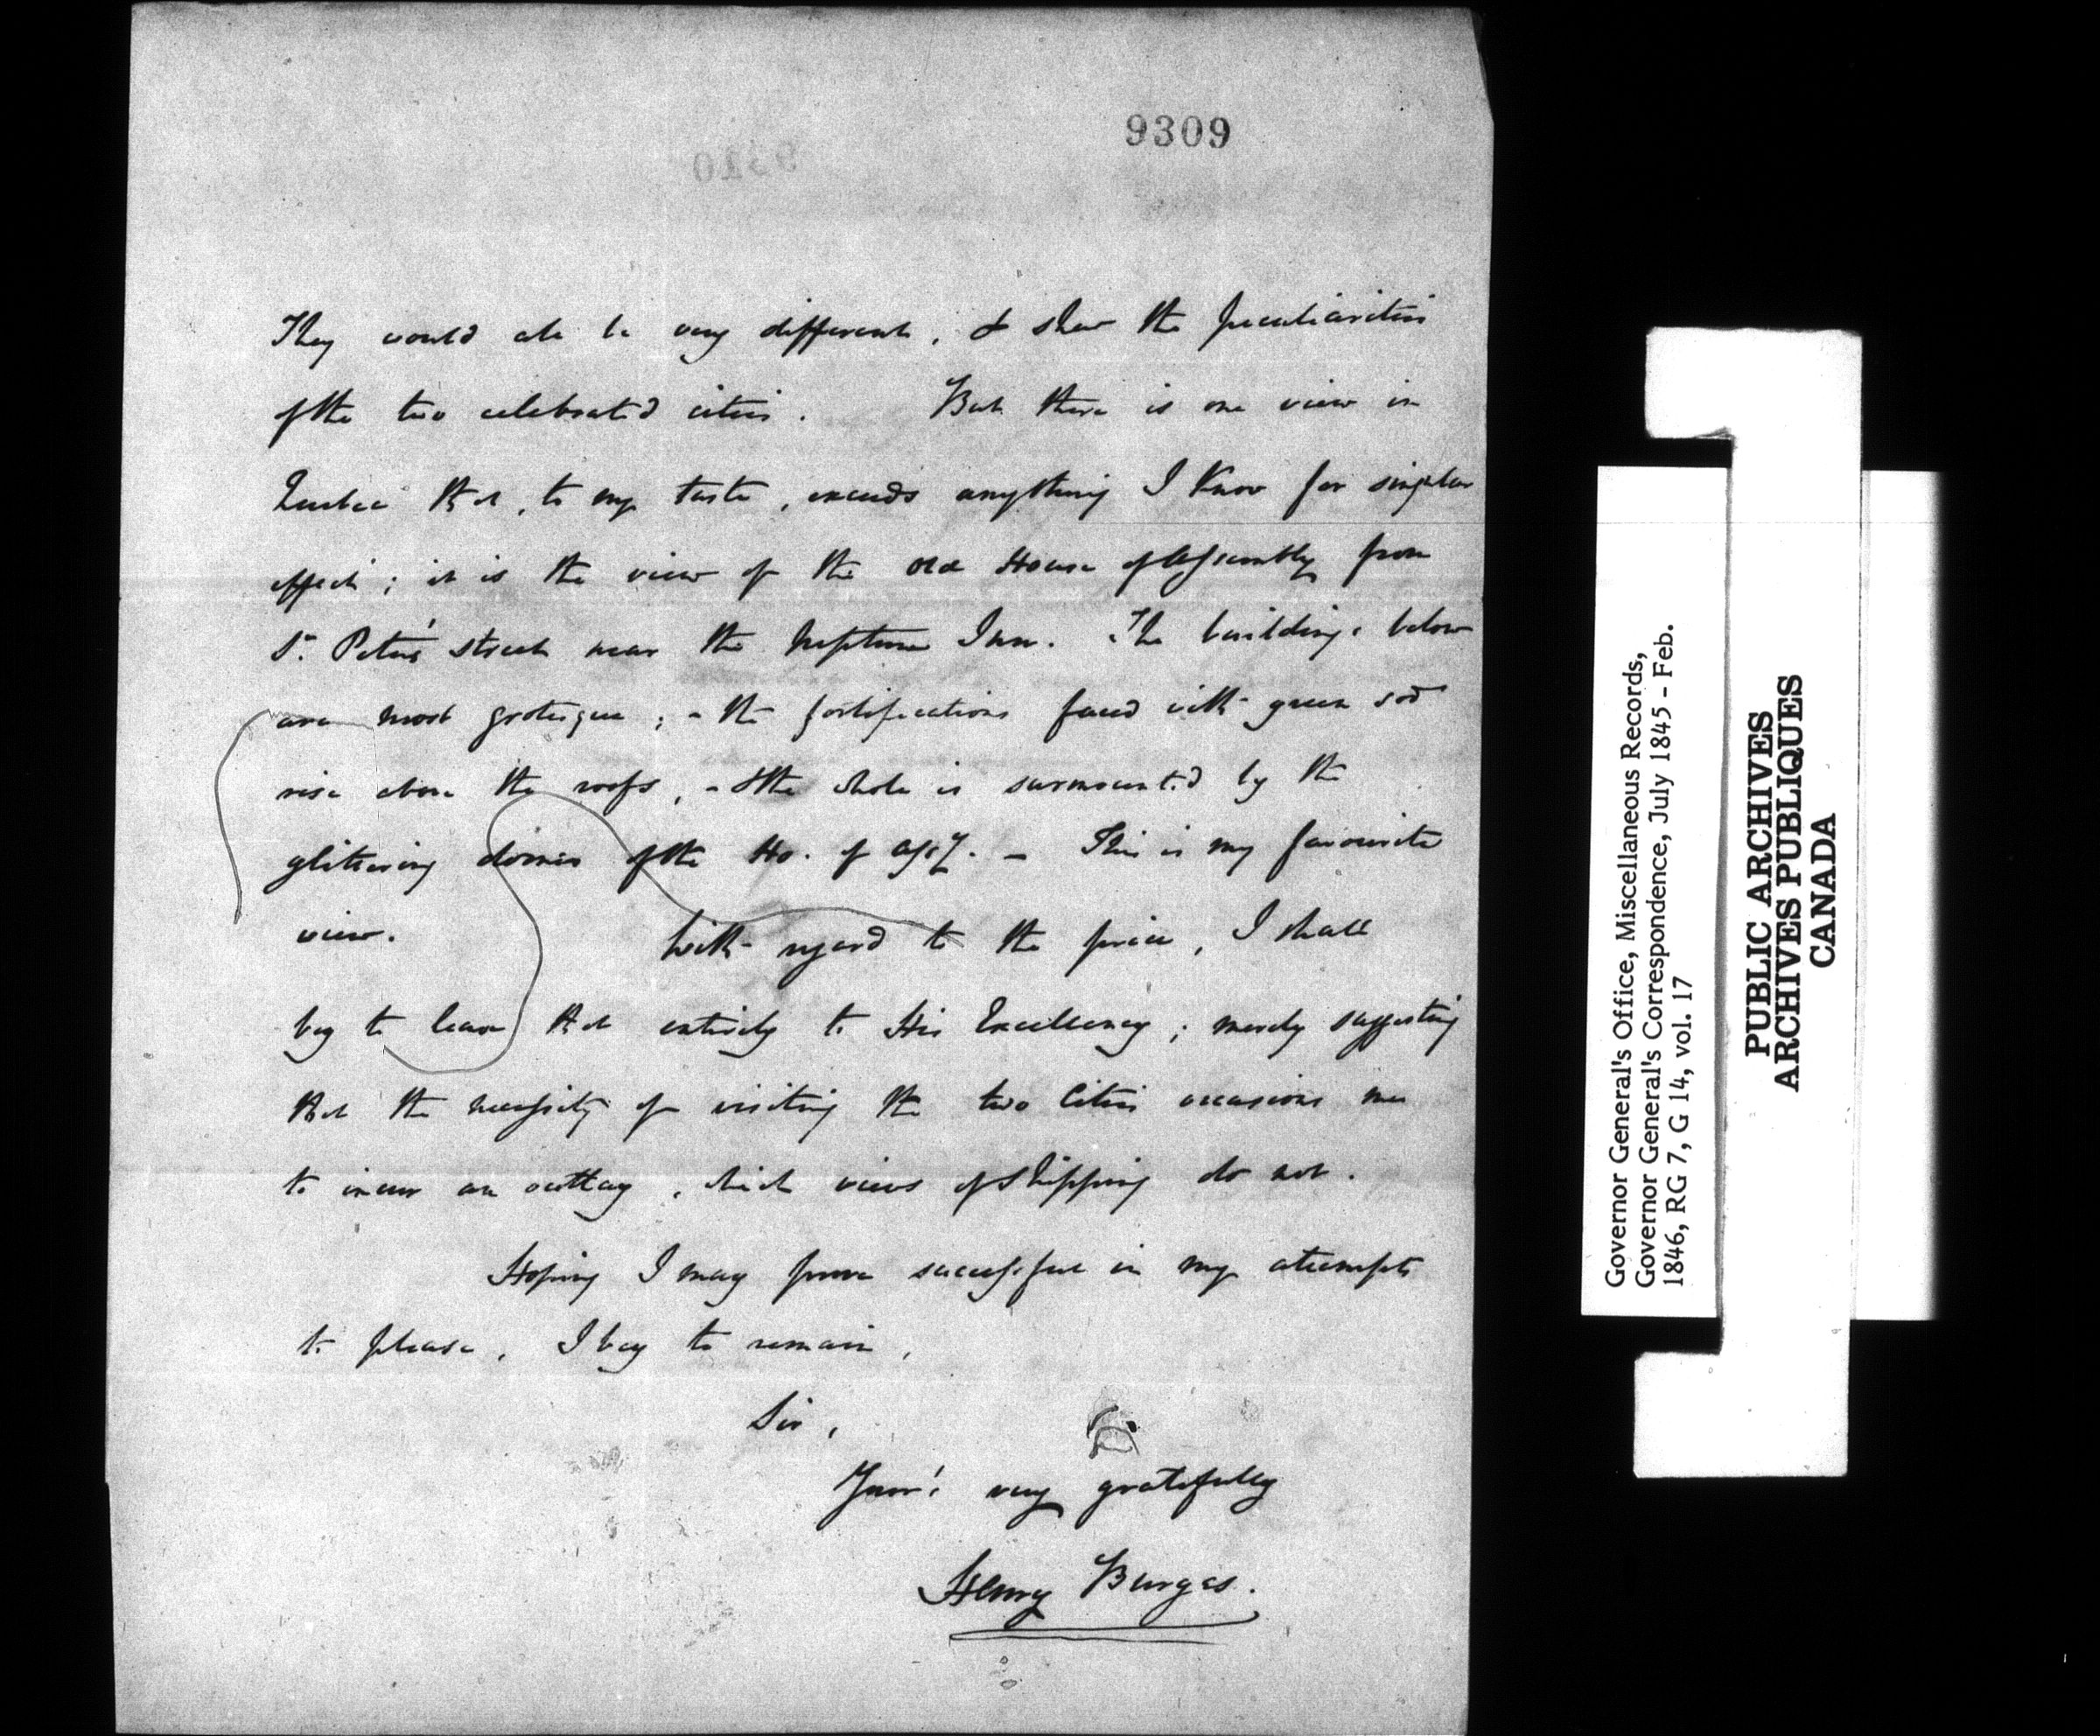 9309
They would also be very different, & shew the peculiarities
of the two celebrated cities. But there is one view in
Quebec that, to my taste, exceeds anything I know for singular
effect; it is the view of the old House of Assembly from
St. Peter's street near the Neptune Inn. The buildings below
are most grotesque; - the fortifications faced with green sod
rise above the roofs, - & the whole is surmounted by the
glittering domes of the Ho. of Assy. - This is my favourite
view. With regard to the price, I shall
beg to leave that entirely to His Excellency; merely suggesting
that the necessity of visiting the two Cities occasions me
to incur an outlay, which views of Shipping do not.
Hoping I may prove successful in my attempts
to please, I beg to remain,
Sir,
Your's very gratefully
Henry Burgas.
Governor General's Office, Miscellaneous Records,
Governor General's Correspondence, July 1845 - Feb.
1846, RG 7, G 14, vol. 17
PUBLIC ARCHIVES
ARCHIVES PUBLIQUES
CANADA